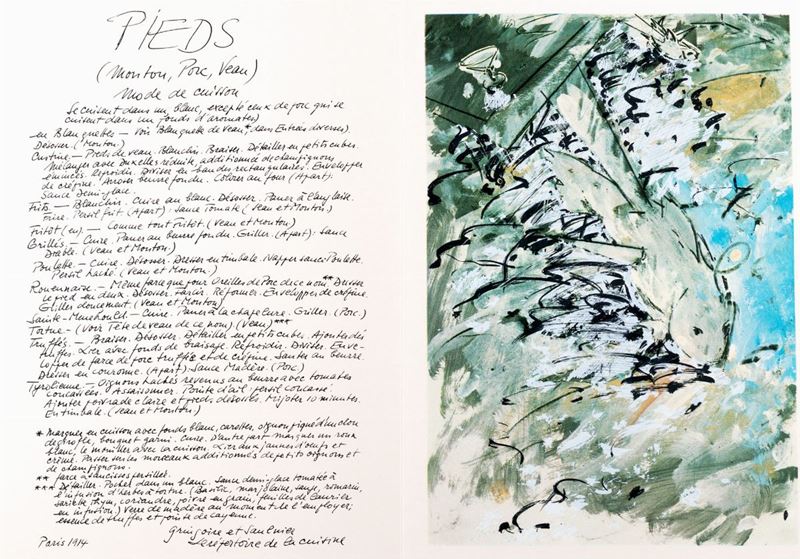 PIEDS
(Mouton, Porc, Veau)
Mode de cuisson
Se cuisent dans un blanc, excepté ceux de porc qui se
cuisent dans un fonds d'aromates)
en Blanquettes — Voir Blanquette de Veau* dans Entrées diverses).
Désosser. (Mouton.)
Custine — Pieds de veau. Blanchir. Braiser. Détailler en petits cubes.
Mélanger avec Duxelles réduite, additionnée de champignons
émincés. Refroidir. Diviser en bandes rectangulaires. Envelopper
de crépine. Arroser beurre fondu. Colorer au four. (Apart).
Sauce Demi-glace.
Frits. — Blanchir. Cuire au blanc. Désosser. Paner à l'anglaise.
Frire. Persil frit (Apart). Sauce Tomate (Veau et Mouton.)
Fritôt (en). — Comme tout Fritôt. (Veau et Mouton.)
Grillés. — Cuire. Paner au beurre fondu. Griller. (Apart): Sauce
Diable. (Veau et Mouton.)
Poulette. — Cuire. Désosser. Dresser en timbale. Napper sauce Poulette.
Persil haché. (Veau et Mouton.)
Rouennaise. — Même farce que pour Oreilles de Porc de ce nom** Dresser
le pied en deux. Désosser. Farcir. Reformer. Envelopper de crépine
Griller doucement. (Veau et Mouton)
Sainte-Menehould. — Cuire. Paner à la chapelure. Griller. (Porc.)
Tortue — (Voir Tête de veau de ce nom). (Veau)***
Truffés. — Braiser. Désosser. Détailler en petits cubes. Ajouter dés
truffes. Lier avec fonds de braisage. Refroidir. Diviser. Enve-
lopper de farce de porc truffée et de crépine. Sauter au beurre
Dresser en couronne. (Apart). Sauce Madère. (Porc)
Tyrolienne. — Oignons hachés revenus au beurre avec tomates
concassées. Assaisonner. Pointe d'ail, persil concassé.
Ajouter poivrade claire et pieds désossés. Mijoter 10 minutes.
En timbale. (Veau et Mouton.)
* Marquer en cuisson avec fonds blanc, carottes, oignon piqué d'un clou
de girofle, bouquet garni. Cuire. D'autre part marquer un roux
blanc, le mouiller avec la cuisson. Lier aux jaunes d'oeufs et
crème. Passer sur les morceaux additionnés de petits oignons et
de champignons.
** farce à saucisses persillée.
*** Détailler. Pocher dans un blanc. Sauce demi-glace tomatée à
l'infusion d'herbes à tortue. (Basilic, marjolaine, sauge, romarin,
sariette, thym, coriandre, poivre en grain, feuilles de laurier
en infusion.) Verre de madère au moment de l'employer;
essence de truffes et pointe de cayenne.
Gringoire et Saulnier
Le répertoire de la cuisine
Paris 1914